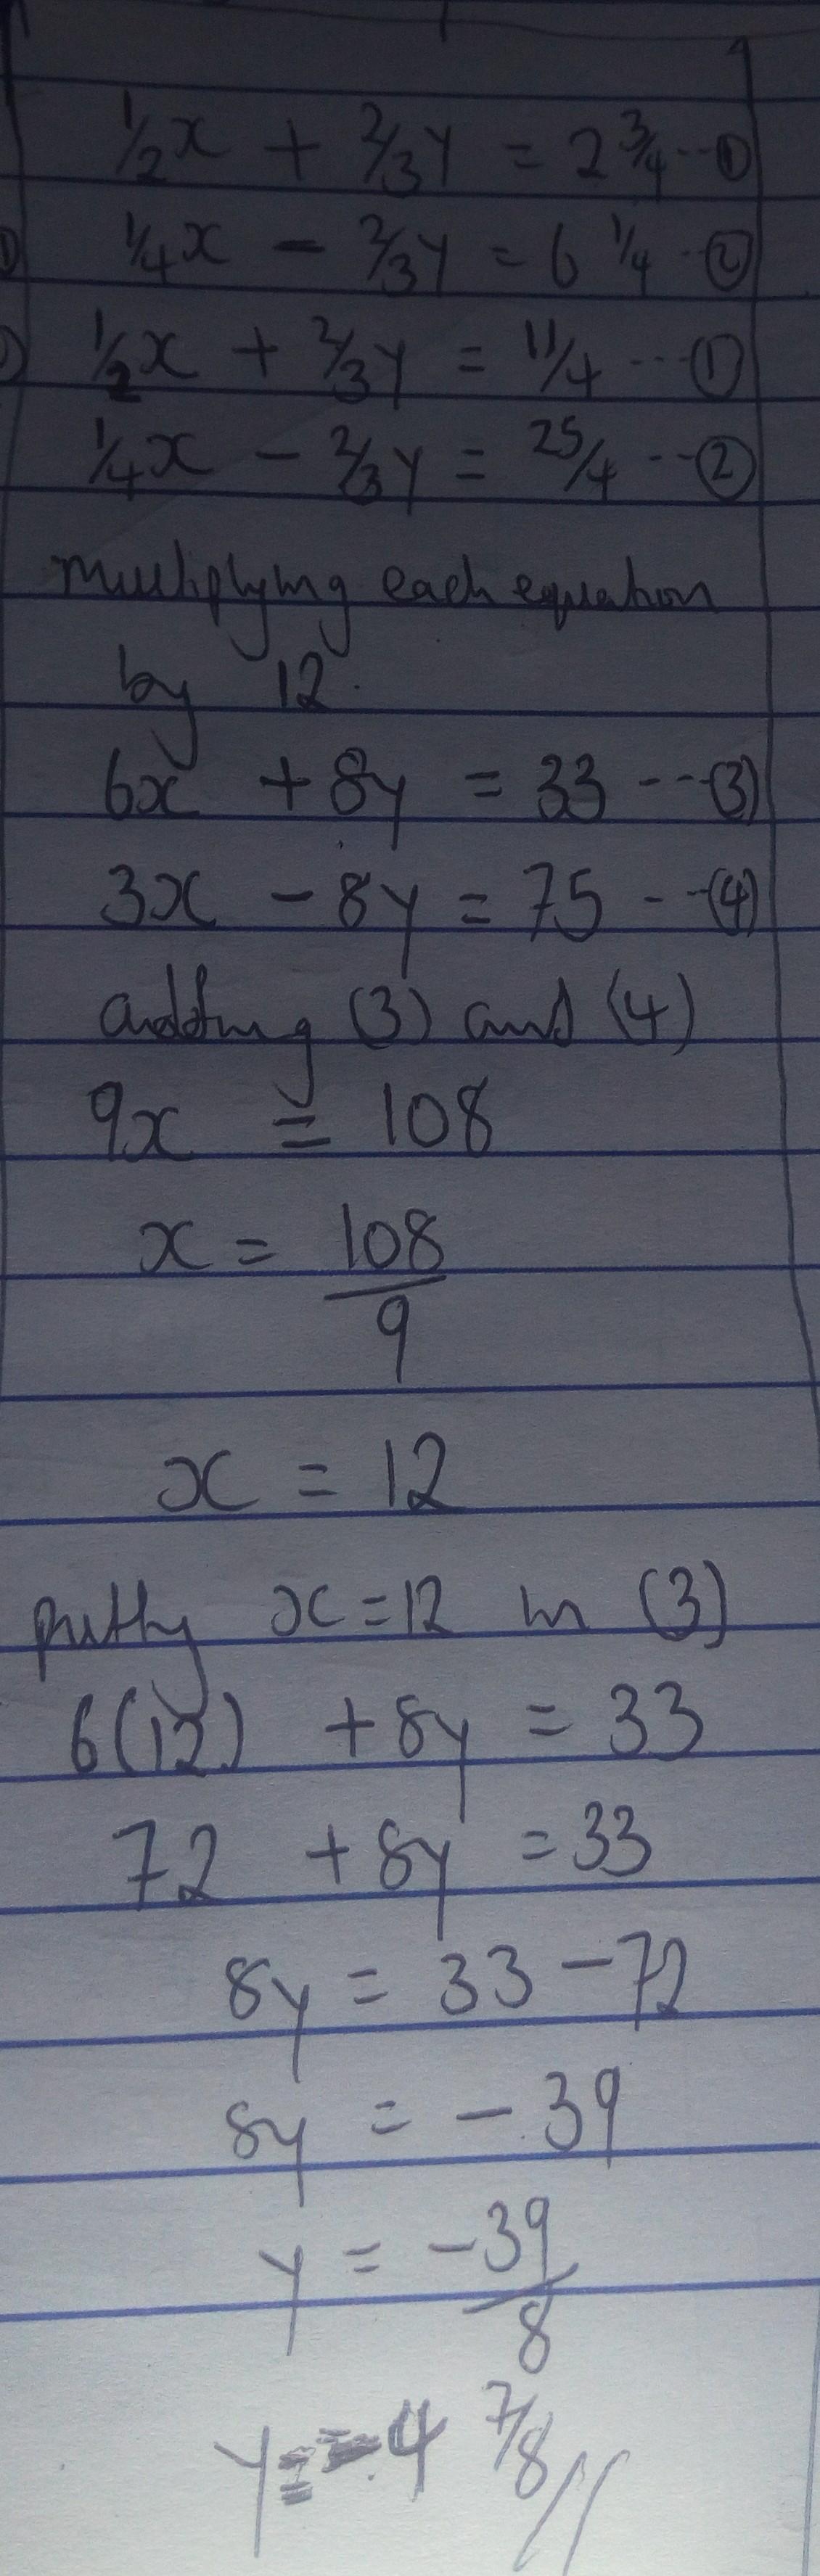 ½x + ⅔y = 2 ¾ --- ①
¼x - ⅔y = 6 ¼ -- ②
½x + ⅔y = 11/4 --- ①
¼x - ⅔y = 25/4 --- ②
multiplying each equation
by 12.
6x + 8y = 33 --- (3)
3x - 8y = 75 --- (4)
adding (3) and (4)
9x = 108
x = 108/9
x = 12
putting x = 12 in (3)
6(12) + 8y = 33
72 + 8y = 33
8y = 33 - 72
8y = - 39
y = -39/8
y = -4 7/8 //